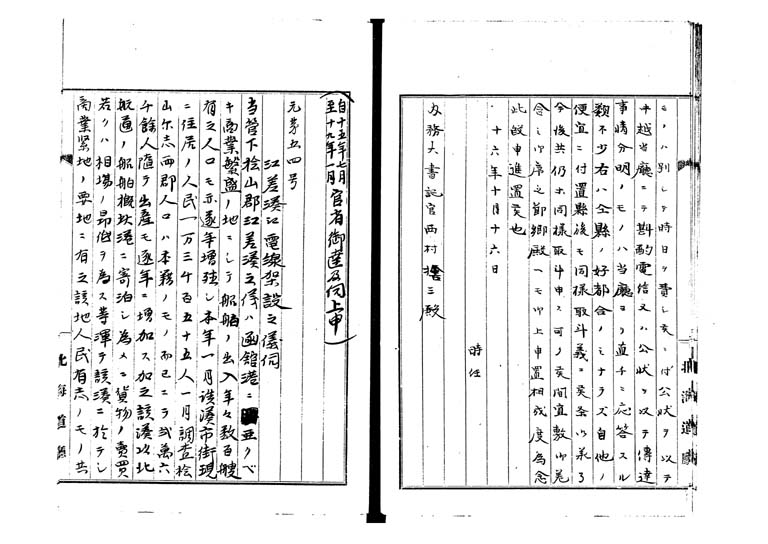 ニノハ別シテ時日ヲ費シ候ニ付公状ヲ以テ
申越当庁ニテ斟酌電信又ハ公状ヲ以テ傳達
事情分明ノモノハ当廳ヨリ直チニ応答スル
類不少右ハ全縣ノ好都合ノミナラズ自他ノ
便宜ニ付置縣後モ同様取斗義ニ候条以来了
今後共仍ホ同様取斗申ス可ノ候間宜敷御差
念之御序之節郷殿ヘモ御上申置相成度為念
此段申進置候也
十六年十月十六日
時任
内務大書記官西村 三殿
自十五年七月
至十九年一月 官省御達及伺上申
元第五四号
江差湊江電線架設之儀伺
当管下桧山郡江差湊之儀ハ函館港ニ亜クベ
キ商業繁盛ノ地ニシテ船舶ノ出入年々数百艘
有之人口モ亦逐年増殖シ本年一月該湊市街現
ニ住居ノ人民一万三千百五十五人一月調査桧
山尓志両郡人口ハ本籍ノモノノミニテ弐萬六
千餘人随テ出産モ逐年ニ増加ス加之該湊以北
航通ノ船舶概此港ニ寄泊シ為メニ貨物ノ賣買
若クハ相場ノ昂低ヲ為ス等渾テ該湊ニ於テシ
商業緊地ノ要地ニ有之該地人民有志ノモノ共
北海道廳